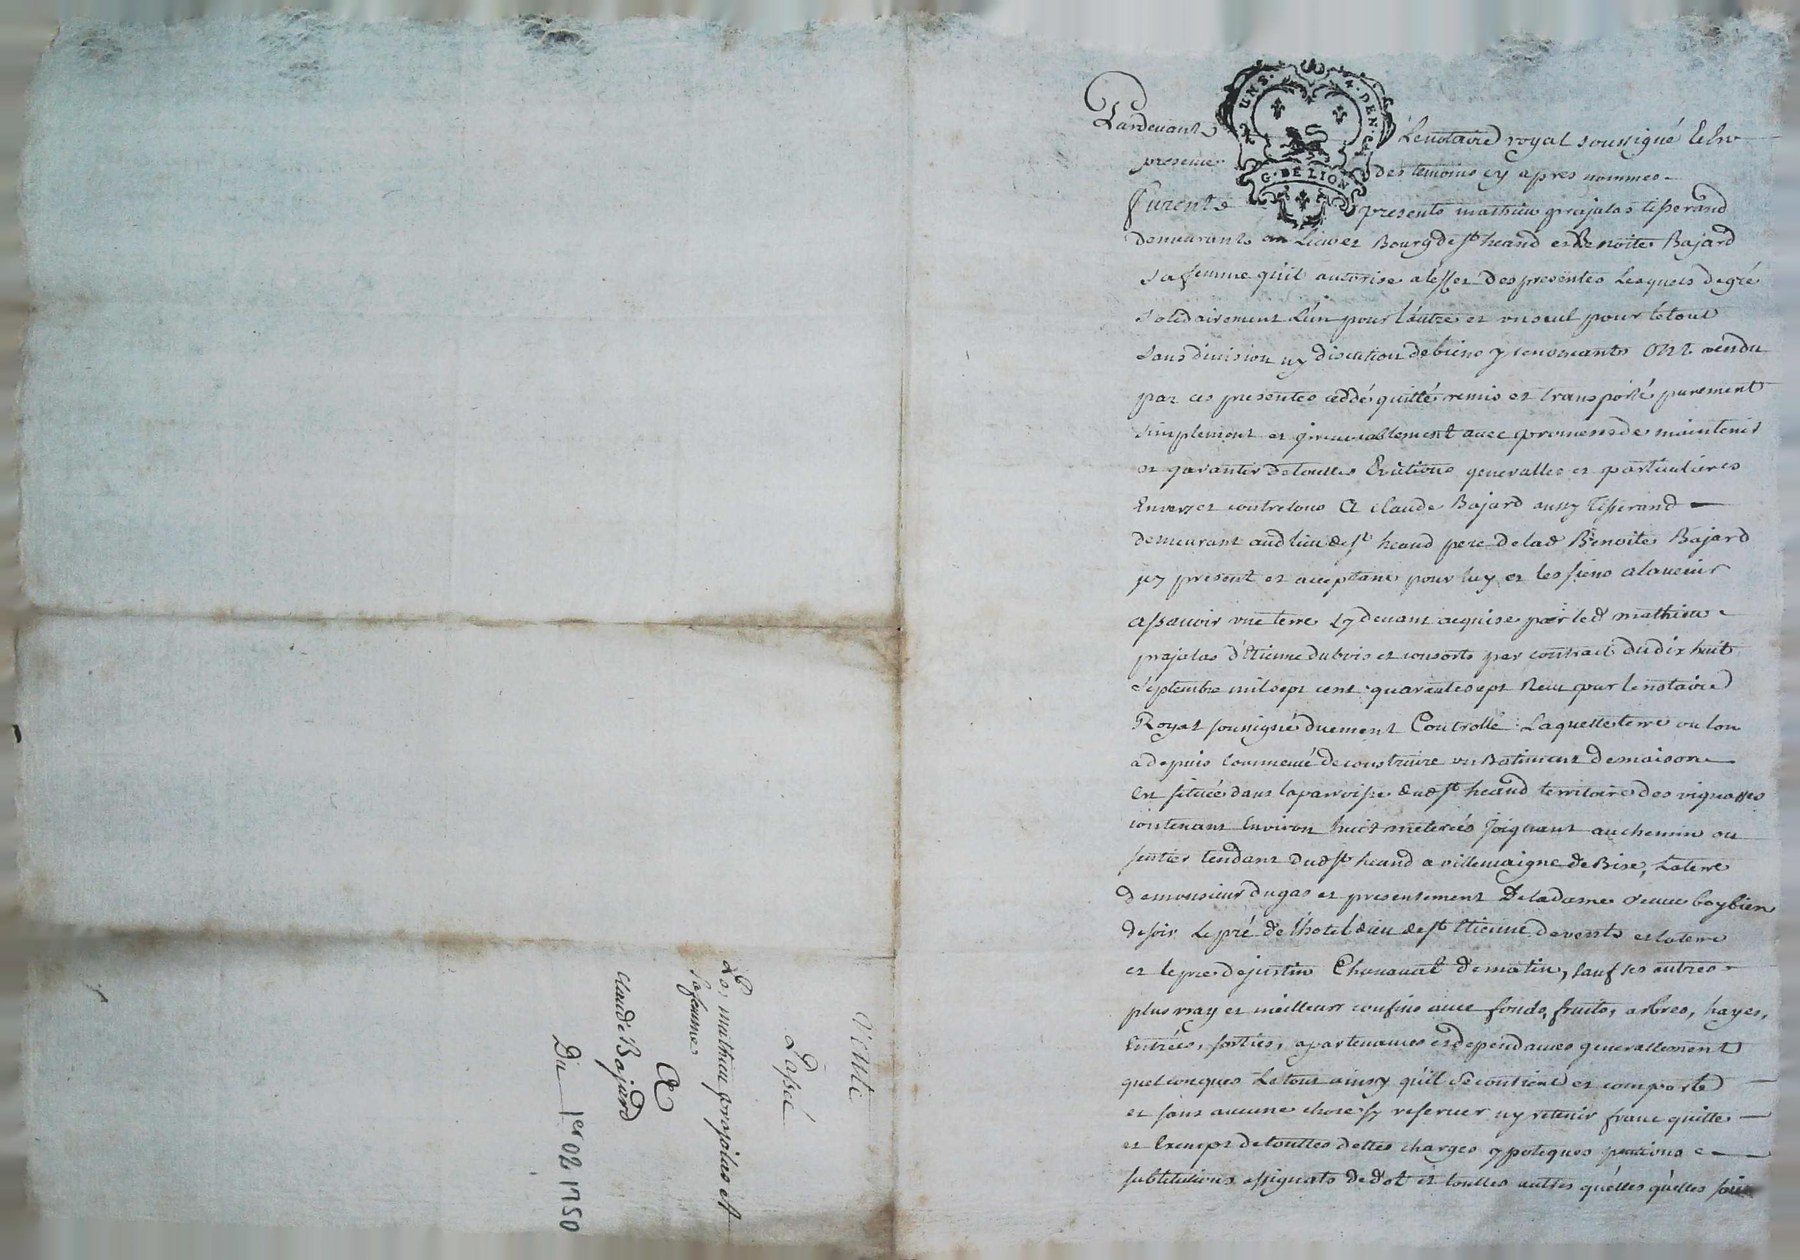 UNS. 4. DEN. 
G. DE LION
Pardevant Le notaire royal soussigné Et en
presence des temoins cy apres nommes
Furent presents mathieu prajalas tisserand
demeurant en Lieu et Bourg de st heand et Benoite Bajard
sa femme qu'il autorise a leffet des presentes Lesquels de gré
solidairement L'un pour l'autre et un seul pour le tout
sans division ny discution de biens y renoncants ont vendu
par ces presentes ceddé quitté remis et transporté purement
simplement et irrevocablement avec promesse de maintenir
et garantir de touttes Evictions generalles et particulieres
Envers et contre tous A claude Bajard aussy Tisserand
demeurant aud lieu de st heand pere de lad Benoite Bajard
icy present et acceptant pour luy et les siens a lavenir
assavoir une terre cy devant acquise par led mathieu
prajalas d'Etienne dubois et consorts par contract du dix huit
septembre mil sept cent quarante sept Receu par le notaire
Royal soussigné duement Controllé Laquelle terre ou lon
a depuis commencé de construire un Batiment de maison
est située dans la parroisse dud st heand territoire des vignasses
contenant Environ huit meterées joignant au chemin ou
sentier tendant dud st heand a villemaigne de Bise, La terre
de monsieur dugas et presentement De la dame veuve boybien
de soir Le pré de l'hotel dieu de st Etienne de vent et la terre
et le pré de justin Chanavat de matin, sauf ses autres
plus vray et meilleurs confins avec fonds, fruits, arbres, hayes,
Entrées, sorties, apartenances et dependances generallement
quelconques Le tout ainsy qu'il se contient et comporte
et sans aucune chose sy reserver ny retenir franc quitte
et Exempt de touttes dettes charges ypoteques pentions
substitutions assignats de dot et touttes autres quelles quelles soient
Vente
Passé
Par mathieu prajalas et
sa femme
A
Claude Bajard
Du 1er 02 1750